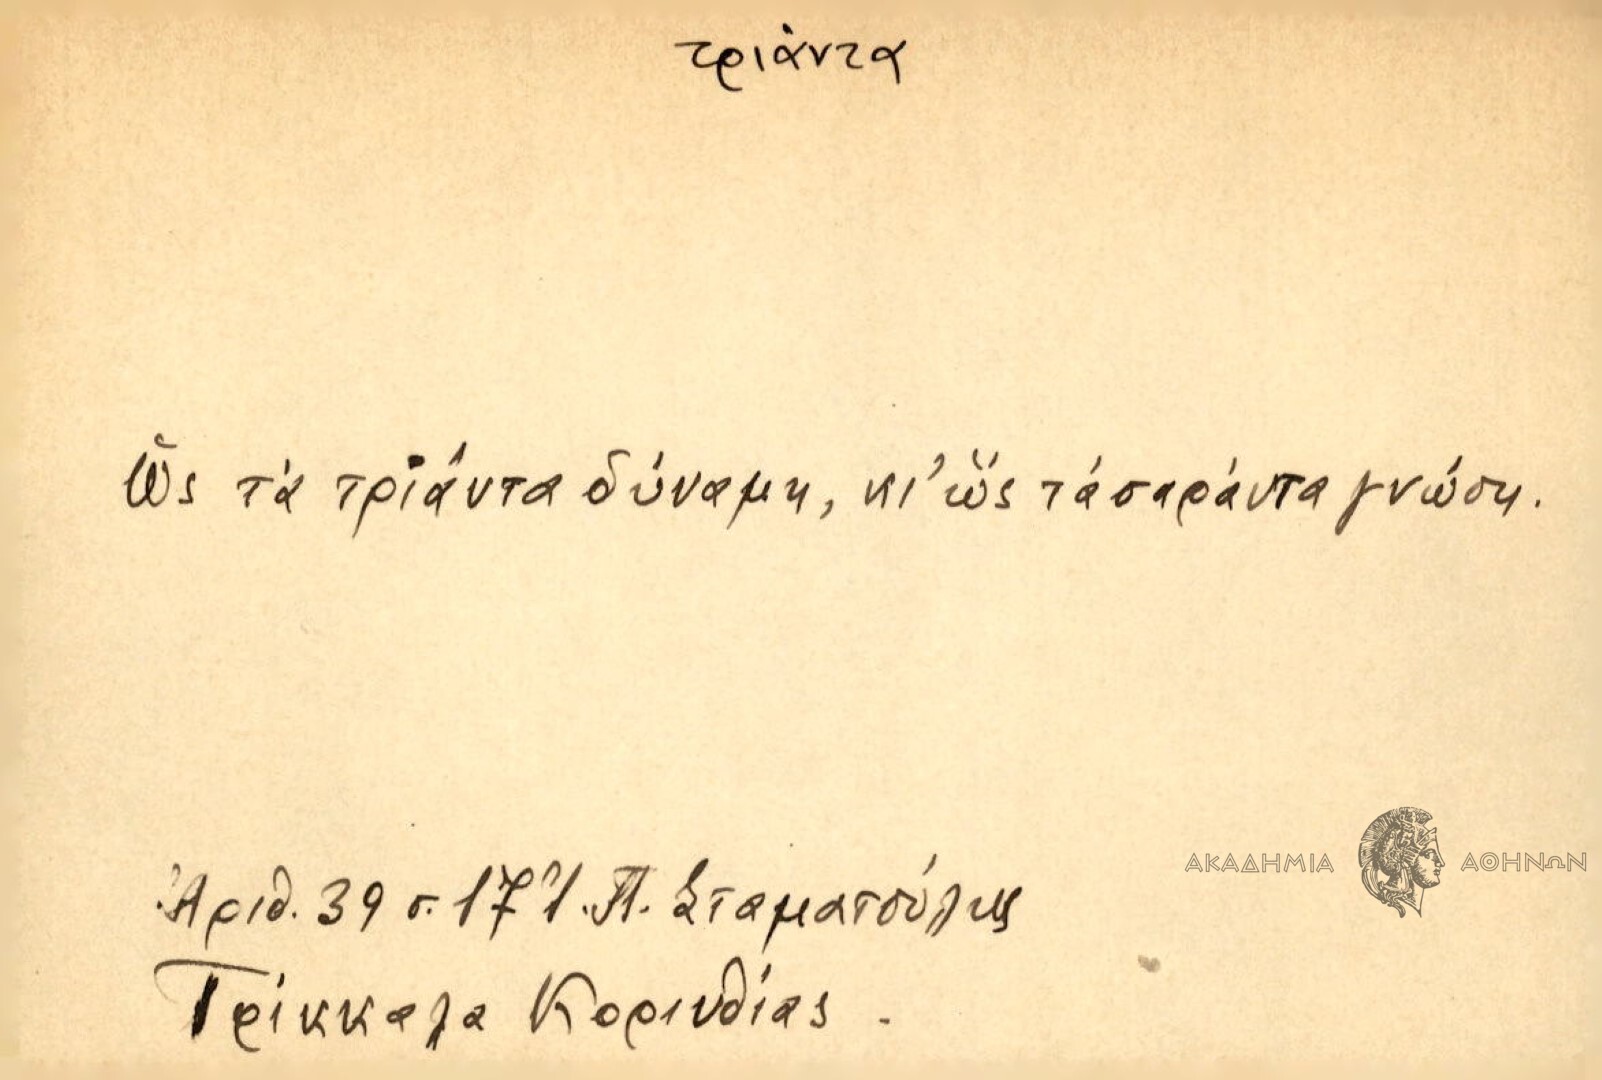 τριάντα
Ὣς τὰ τριάντα δύναμη, κι' ὣς τὰ σαράντα γνώση.
ΑΚΑΔΗΜΙΑ ΑΘΗΝΩΝ
Ἀριθ. 39 σ. 17 Ἰ. Π. Σταματούλης
Τρίκκαλα Κορινθίας.